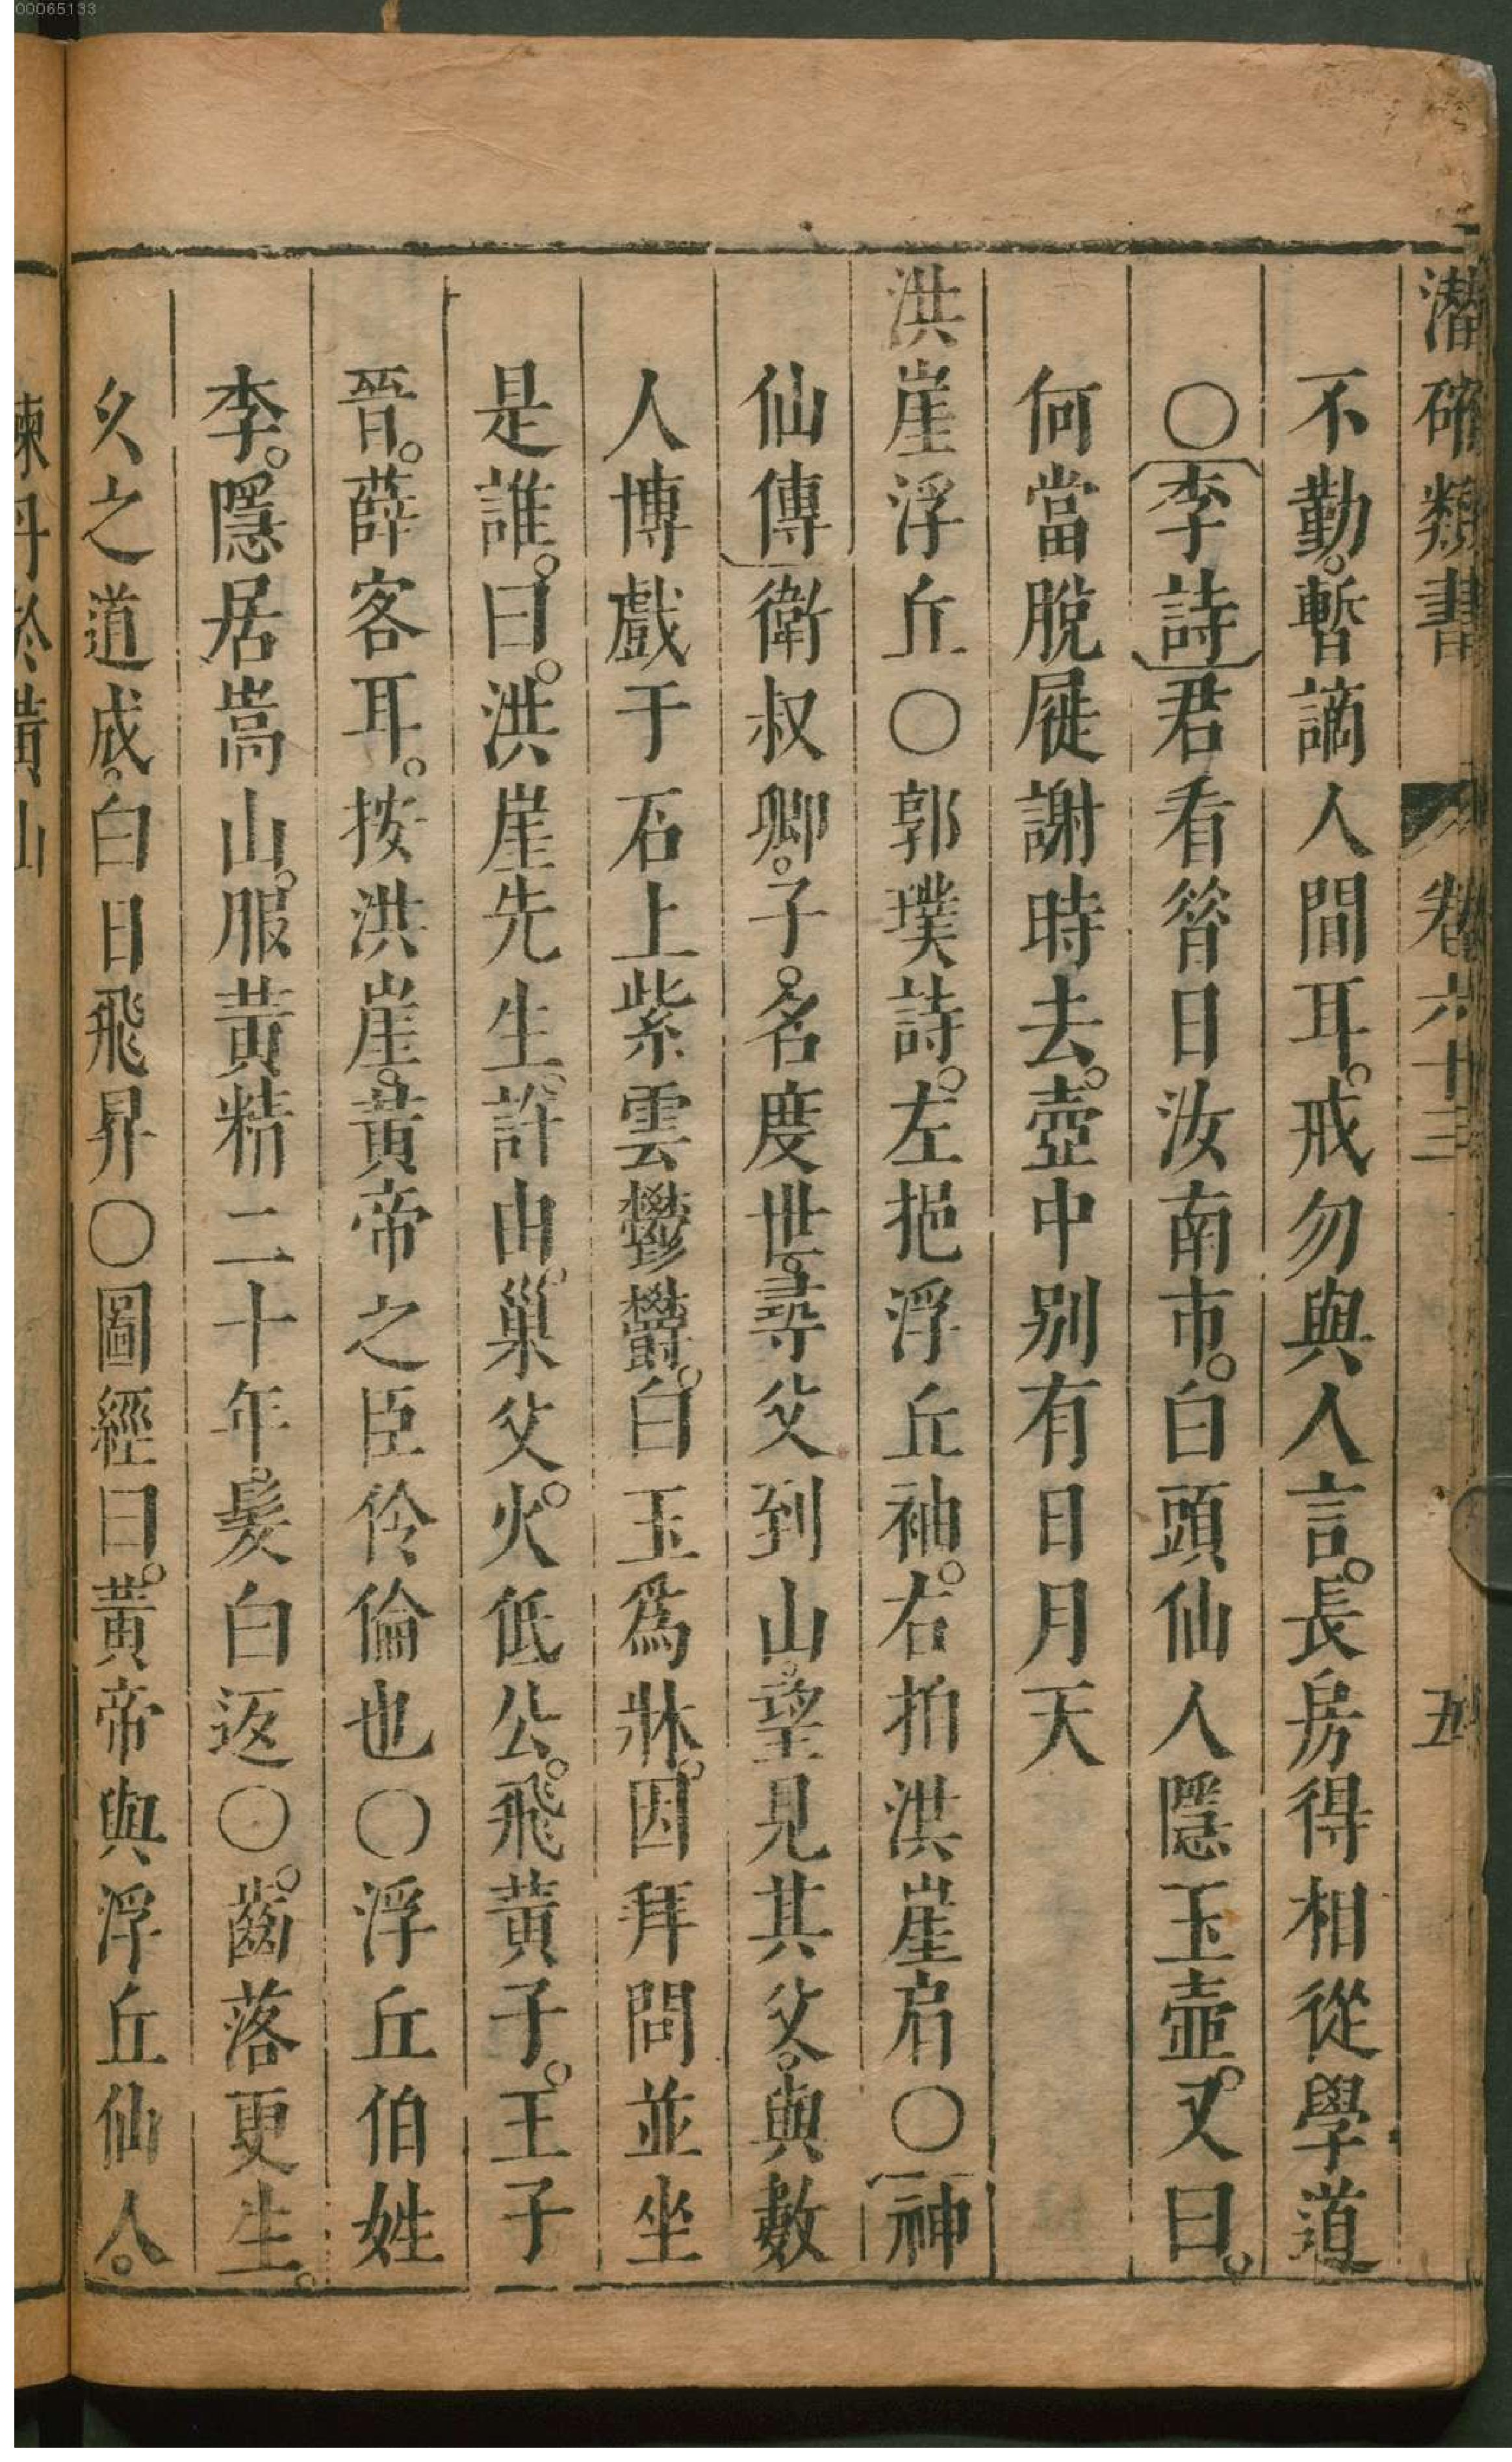 00065133
潛確類書 卷六十三 五
不勤。暫謫人間耳。戒勿與人言。長房得相從學道
〇李詩君看簪日汝南市。白頭仙人隱玉壺。又曰。
何當脫屣謝時去。壺中別有日月天
洪崖浮丘〇郭璞詩。左挹浮丘袖。右拍洪崖肩〇神
仙傳衛叔卿。子。名度世。尋父到山。望見其父。與數
人博戲于石上紫雲鬱鬱。白玉爲牀。因拜問並坐
是誰。曰。洪崖先生。許由。巢父。火低公。飛黃子。王子
晉。薛客耳。按洪崖。黃帝之臣伶倫也〇浮丘伯姓
李。隱居嵩山。服黃精二十年。髮白返〇。齒落更生。
久之道成。白日飛昇〇圖經曰。黃帝與浮丘仙人。
煉丹於黃山